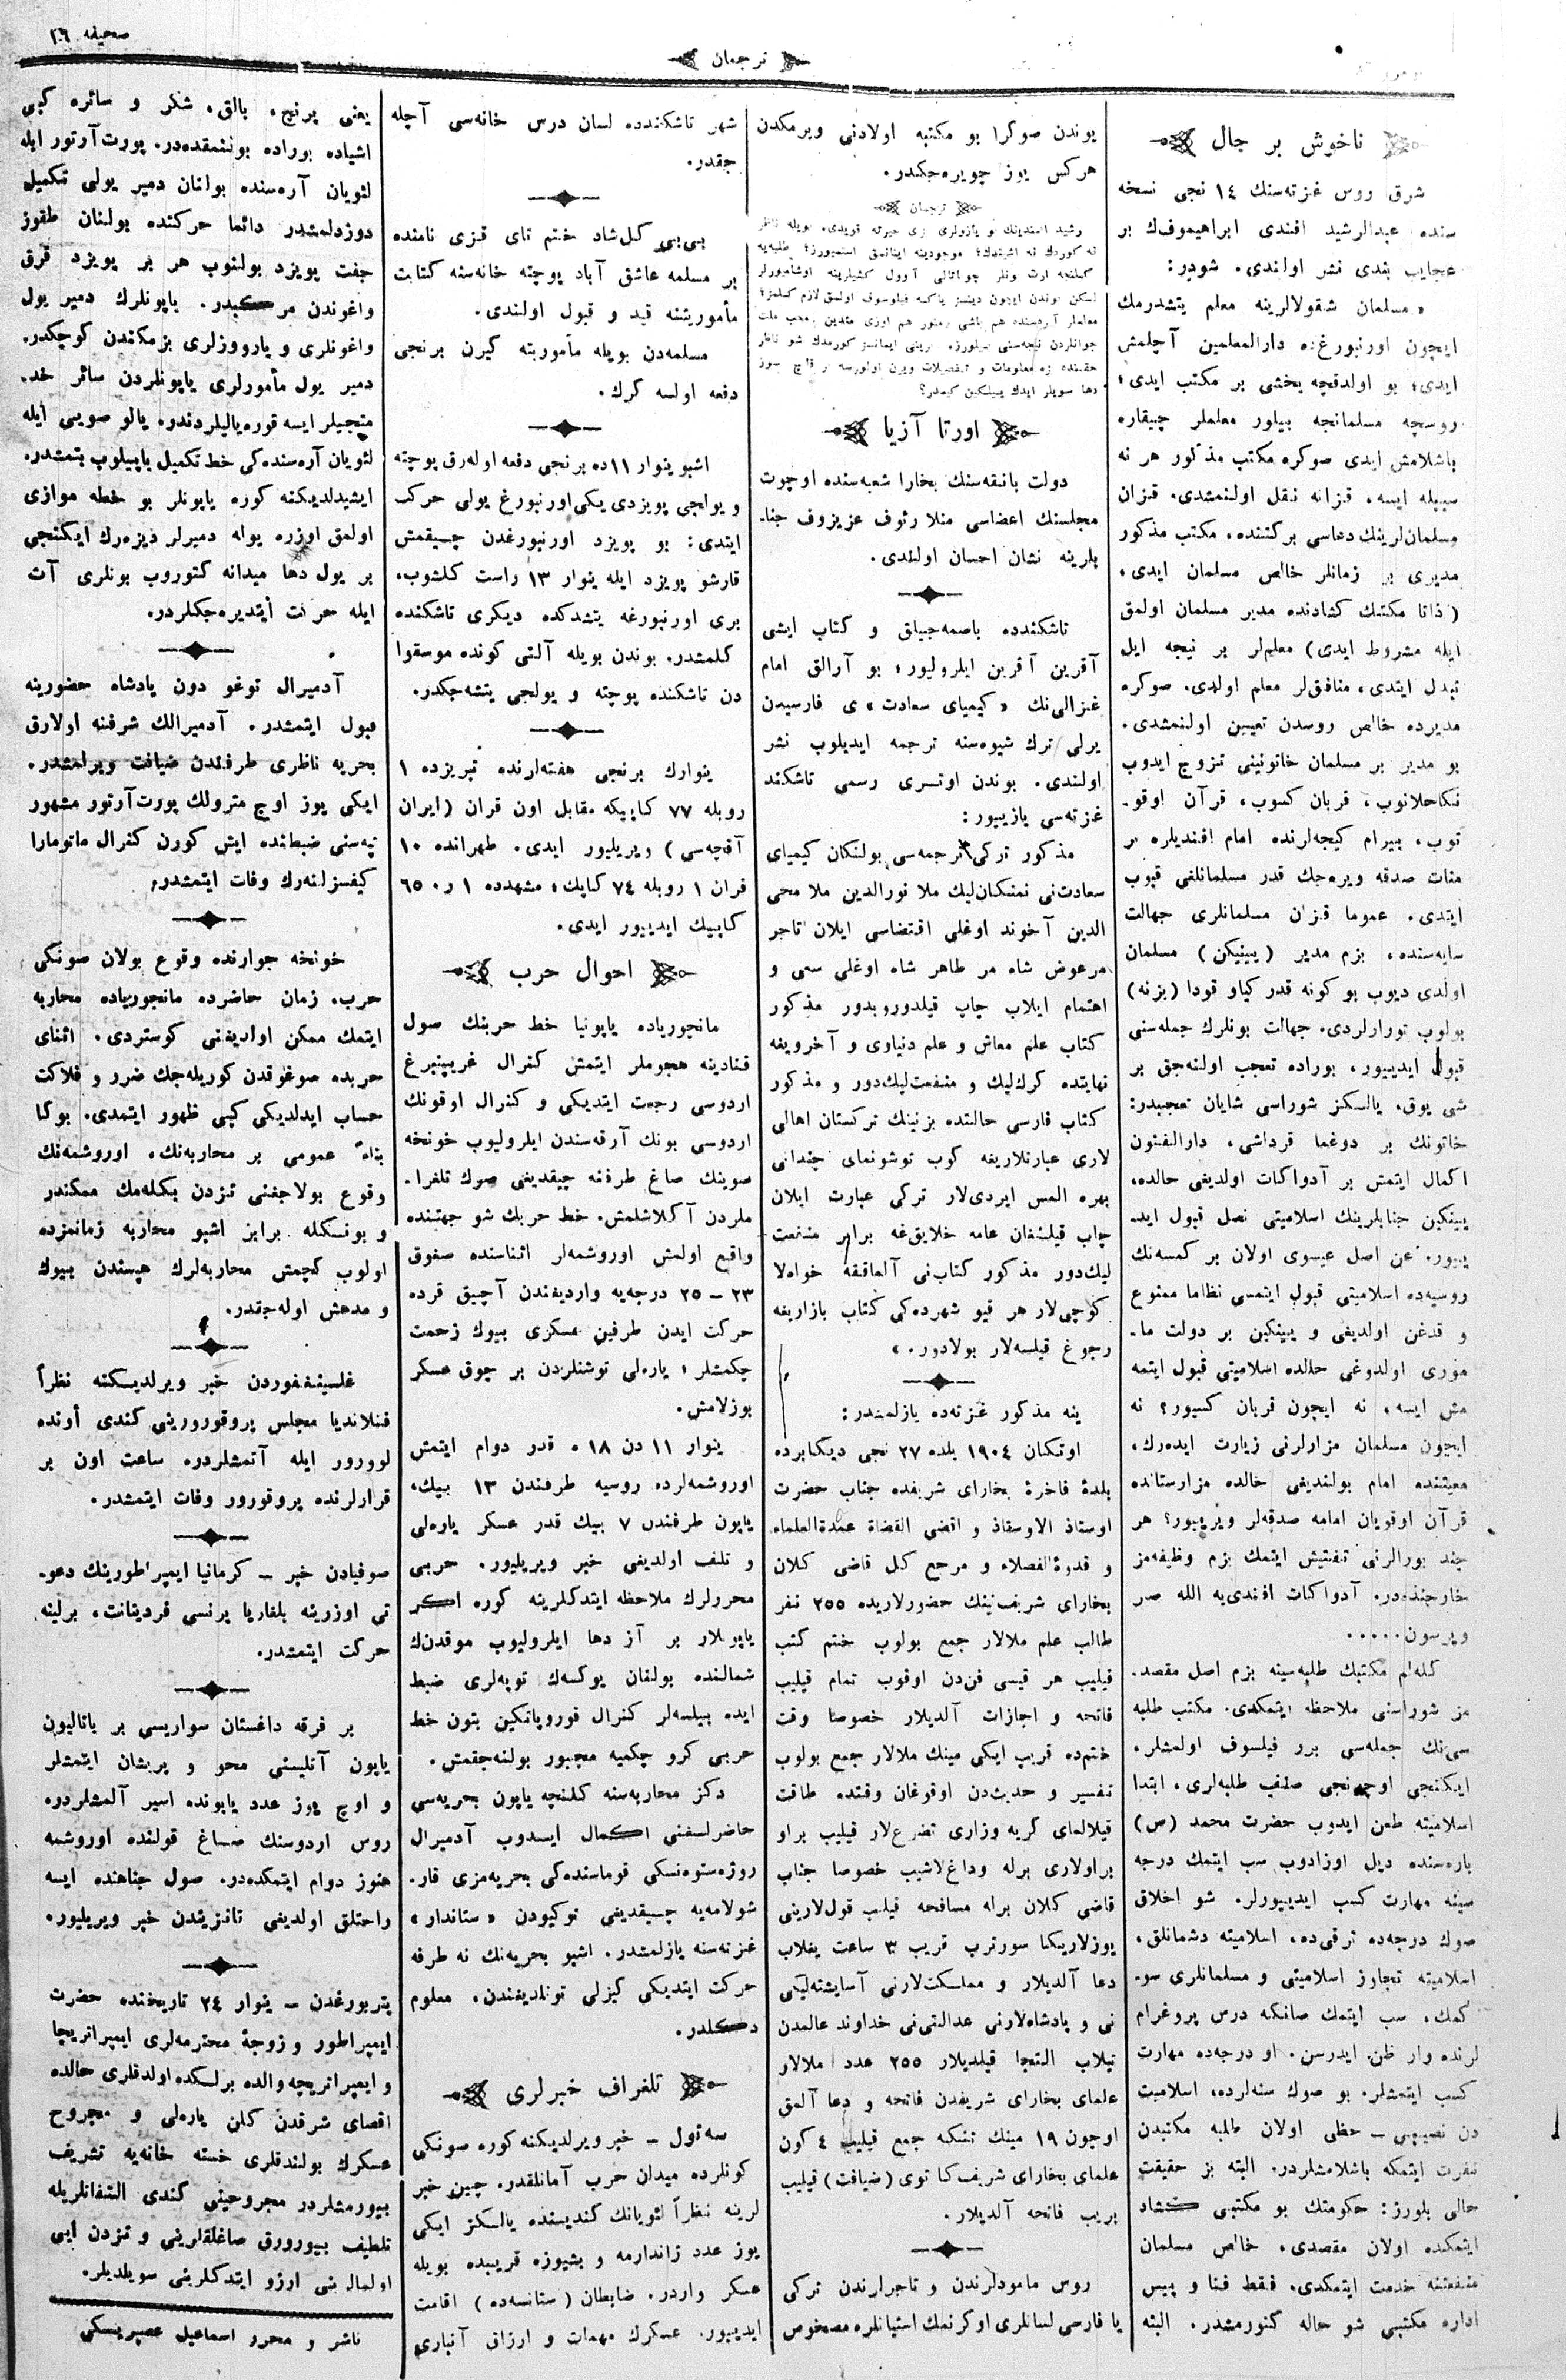 صحیفه ١٦
ترجمان
ناخوش بر حال
شرق روس غزته‌سنك ١٤ نجی نسخه
سنده عبدالرشید افندی ابراهیموف‌ك بر
عجایب بندی نشر اولندی. شودر:
« مسلمان شقولالرینه معلم یتشدرمك
ایچون اورنبورغده دارالمعلمین آچلمش
ایدی؛ بو اولدقچه یخشی بر مكتب ایدی؛
روسچه مسلمانجه بیلور معلملر چیقاره
باشلامش ایدی صوكره مكتب مذكور هر نه
سببله ایسه، قزانه نقل اولنمشدی. قزان
مسلمان‌لرینك دعاسی بركتنده، مكتب مذكور
مدیری بر زمانلر خالص مسلمان ایدی،
(ذاتا مكتبك كشادنده مدیر مسلمان اولمق
ایله مشروط ایدی) معلم‌لر بر نیجه ایل
تبدل ایتدی، منافق‌لر معلم اولدی. صوكره
مدیرده خالص روسدن تعیین اولنمشدی.
بو مدیر بر مسلمان خاتونینی تزوج ایدوب
نكاحلانوب، قربان كسوب، قرآن اوقو-
توب، بیرام كیجه‌لرنده امام افندیلره بر
منات صدقه ویره‌جك قدر مسلمانلغی قبوب
ایتدی. عموما قزان مسلمانلری جهالت
سایه‌سنده، بزم مدیر (یپنیكن) مسلمان
اولدی دیوب بو كونه قدر كیاو قودا (بزنه)
بولوب تورارلردی. جهالت بونلرك جمله‌سنی
قبول ایدییور، بوراده تعجب اولنه‌جق بر
شی یوق، یالكز شوراسی شایان تعجبدر:
خاتونك بر دوغما قرداشی، دارالفنون
اكمال ایتمش بر آدواكات اولدیغی حالده،
یپنكین جنابلرینك اسلامیتی نصل قبول اید-
ییور. عن اصل عیسوی اولان بر كمسه‌نك
روسیه‌ده اسلامیتی قبول ایتمسی نظاما ممنوع
و قدغن اولدیغی و یپنكین بر دولت مأ-
موری اولدوغی حالده اسلامیتی قبول ایتمه
مش ایسه، نه ایچون قربان كسیور؟ نه
ایچون مسلمان مزارلرنی زیارت ایده‌رك،
معیتنده امام بولندیغی حالده مزارستانده
قرآن اوقویان امامه صدقه‌لر ویرییور؟ هر
چند بورالرنی تفتیش ایتمك بزم وظیفه‌مز
خارجنده‌در. آدواكات افندی‌یه الله صبر
ویرسون.....
كله‌لم مكتبك طلبه‌سینه بزم اصل مقصد-
مز شوراسنی ملاحظه ایتمكدی. مكتب طلبه
سی‌نك جمله‌سی برر فیلسوف اولمشلر،
ایكنجی اوچونجی صنف طلبه‌لری، ابتدا
اسلامیته طعن ایدوب حضرت محمد (ص)
باره‌سنده دیل اوزادوب سب ایتمك درجه
سینه مهارت كسب ایدییورلر. شو اخلاق
صوك درجه‌ده ترقی‌ده، اسلامیته دشمانلق،
اسلامیته تجاوز اسلامیتی و مسلمانلری سو-
كمك، سب ایتمك صانكه درس پروغرام
لرنده وار ظن. ایدرسن. او درجه‌ده مهارت
كسب ایتمشلر. بو صوك سنه‌لرده، اسلامیت
دن نصیبی - حظی اولان طلبه مكتبدن
نفرت ایتمكه باشلامشلردر. البته بز حقیقت
حالی بلورز: حكومتك بو مكتبی كشاد
ایتمكده اولان مقصدی، خالص مسلمان
منفعتنه خدمت ایتمكدی. فقط فنا و پیس
اداره مكتبی شو حاله كتورمشدر. البته
بوندن صوكرا بو مكتبه اولادنی ویرمكدن
هركس یوز چویره‌جكدر.
ترجمان
اورتا آزیا
دولت بانقه‌سنك بخارا شعبه‌سنده اوچوت
مجلسنك اعضاسی منلا رئوف عزیزوف جنا-
بلرینه نشان احسان اولندی.
تاشكندده باصمه‌جیلق و كتاب ایشی
آقرین آقرین ایلرولیور؛ بو آرالق امام
غزالی‌نك «كیمیای سعادت» ی فارسیدن
یرلی ترك شیوه‌سنه ترجمه ایدیلوب نشر
اولندی. بوندن اوتری رسمی تاشكند
غزته‌سی یازییور:
مذكور تركی ترجمه‌سی بولنكان كیمیای
سعادت‌نی نمنكان‌لیك ملا نورالدین ملا محی
الدین آخوند اوغلی اقتضاسی ایلان تاجر
مرعوض شاه مر طاهر شاه اوغلی سعی و
اهتمام ایلاب چاپ قیلدوروبدور مذكور
كتاب علم معاش و علم دنیاوی و آخرویغه
نهایتده كرك‌لیك و منفعت‌لیك‌دور و مذكور
كتاب فارسی حالنده بزنینك تركستان اهالی
لاری عبارتلاریغه كوب توشونمای چندانی
بهره المس ایردی‌لار تركی عبارت ایلان
چاپ قیلنغان عامه خلایق‌غه برابر منفعت
لیك‌دور مذكور كتاب‌نی آلماققه خواه‌لا
كوچی‌لار هر قیو شهرده‌كی كتاب بازاریغه
رجوع قیلسه‌لار بولادور.»
ینه مذكور غزته‌ده یازلمشدر:
اوتكان ١٩٠٤ یلده ٢٧ نجی دیكابرده
بلدهٔ فاخرهٔ بخارای شریفده جناب حضرت
اوستاذ الاوستاذ و اقضی القضاة عمدةالعلماء
و قدوةالفصلاء و مرجع كل قاضی كلان
بخارای شریف‌نینك حضورلاریده ٢٥٥ نفر
طالب علم ملالار جمع بولوب ختم كتب
قیلیب هر قیسی فن‌دن اوقوب تمام قیلیب
فاتحه و اجازات آلدیلار خصوصا وقت
ختم‌ده قریب ایكی مینك ملالار جمع بولوب
تفسیر و حدیث‌دن اوقوغان وقتده طاقت
قیلالمای گریه وزاری تضرع‌لار قیلیب براو
براولاری برله وداع‌لاشیب خصوصا جناب
قاضی كلان برله مسافحه قیلب قول‌لارینی
یوزلاریكا سورترب قریب ٣ ساعت یغلاب
دعا آلدیلار و مملكت‌لارنی آسایشته‌لیكی
نی و پادشاه‌لارنی عدالتی‌نی خداوند عالمدن
تیلاب التجا قیلدیلار ٢٥٥ عدد ملالار
علمای بخارای شریفدن فاتحه و دعا آلمق
اوچون ١٩ مینك تنكه جمع قیلیب ٤ كون
علمای بخارای شریف‌كا توی (ضیافت) قیلیب
بریب فاتحه آلدیلار.
روس مامودلرندن و تاجرلرندن تركی
یا فارسی لسانلری اوكرنمك استیانلره مخصوص
شهر تاشكندده لسان درس خانه‌سی آچله
جقدر.
بی‌بی گل‌شاد ختم تای قزی نامنده
بر مسلمه عاشق آباد پوچته خانه‌سنه كتابت
مأموریتنه قید و قبول اولندی.
مسلمه‌دن بویله مأموریته كیرن برنجی
دفعه اولسه كرك.
اشبو ینوار ١١ده برنجی دفعه اوله‌رق پوچته
و یولجی پویزدی یكی اورنبورغ یولی حركت
ایتدی: بو پویزد اورنبورغدن چیقمش
قارشو پویزد ایله ینوار ١٣ راست كلشوب،
بری اورنبورغه یتشدكده دیكری تاشكنده
كلمشدر. بوندن بویله آلتی كونده موسقوا
دن تاشكنده پوچته و یولجی یتشه‌جكدر.
ینوارك برنجی هفته‌لرنده تبریزده ١
روبله ٧٧ كاپیكه مقابل اون قران (ایران
آقچه‌سی) ویریلیور ایدی. طهرانده ١٠
قران ١ روبله ٧٤ كاپك؛ مشهدده ١ ر. ٦٥
كاپیك ایدییور ایدی.
احوال حرب
مانجوریاده یاپونیا خط حربنك صول
قنادینه هجوملر ایتمش كنرال غریپنبرغ
اردوسی رجعت ایتدیكی و كنرال اوقونك
اردوسی بونك آرقه‌سندن ایلرولیوب خونخه
صوینك صاغ طرفنه چیقدیغی صوك تلغرا-
ملردن آكلاشلمش. خط حربك شو جهتنده
واقع اولمش اوروشمه‌لر اثناسنده صغوق
٢٣ - ٢٥ درجه‌یه واردیغندن آچیق قرده
حركت ایدن طرفین عسكری بیوك زحمت
چكمشلر؛ یاره‌لی توشنلردن بر چوق عسكر
بوزلامش.
ینوار ١١ دن ١٨ ه قدر دوام ایتمش
اوروشمه‌لرده روسیه طرفندن ١٣ بیك،
یاپون طرفندن ٧ بیك قدر عسكر یاره‌لی
و تلف اولدیغی خبر ویریلیور. حربی
محررلرك ملاحظه ایتدكلرینه كوره اكر
یاپونلار بر آز دها ایلرولیوب موقدن‌ك
شمالنده بولنان یوكسه‌ك توپه‌لری ضبط
ایده بیلسه‌لر كنرال قوروپاتكین بتون خط
حربی كرو چكمیه مجبور بولنه‌جقمش.
دكز محاربه‌سنه كلنجه یاپون بحریه‌سی
حاضرلغنی اكمال ایدوب آدمیرال
روژه‌ستوه‌نسكی قوماسنده‌كی بحریه‌مزی قار-
شولامه‌یه چیقدیغی توكیودن «ستاندار»
غزته‌سنه یازلمشدر. اشبو بحریه‌نك نه طرفه
حركت ایتدیكی گیزلی توتلدیغندن، معلوم
دكلدر.
تلغراف خبرلری
سه‌ئول - خبر ویرلدیكنه كوره صونكی
كونلرده میدان حرب آمانلقدر. چین خبر
لرینه نظراً لئویانك كندیسنده یالكز ایكی
یوز عدد ژاندارمه و بشیوزه قریبده بویله
عسكر واردر. ضابطان (ستانسه‌ده) اقامت
ایدییور. عسكرك مهمات و ارزاق آنباری
یعنی پرنج، بالق، شكر و سائره كبی
اشیاده بوراده بولنمقده‌در. پورت آرتور ایله
لئویان آره‌سنده بولنان دمیر یولی تكمیل
دوزدلمشدر دائما حركتده بولنان طقوز
جفت پویزد بولنوب هر بر پویزد قرق
واغوندن مركبدر. یاپونلرك دمیر یول
واغونلری و پارووزلری بزمكندن كوچكدر.
دمیر یول مأمورلری یاپونلردن سائر خد-
متجیلر ایسه قوره‌یالیلردندر. یالو صویی ایله
لئویان آره‌سنده‌كی خط تكمیل یاپیلوب بتمشدر.
ایشیدلدیكنه كوره یاپونلر بو خطه موازی
اولمق اوزره یوله دمیرلر دیزه‌رك ایكنجی
بر یول دها میدانه كتوروب بونلری آت
ایله حركت ایتدیره‌جكلردر.
آدمیرال توغو دون پادشاه حضورینه
قبول ایتمشدر. آدمیرالك شرفنه اولارق
بحریه ناظری طرفندن ضیافت ویرلمشدر.
ایكی یوز اوچ مترولك پورت آرتور مشهور
تپه‌سنی ضبطنده ایش كورن كنرال ماتومارا
كیفسزلنه‌رك وفات ایتمشدر.
خونخه جوارنده وقوع بولان صونكی
حرب، زمان حاضرده مانجوریاده محاربه
ایتمك ممكن اولدیغنی كوستردی. اثنای
حربده صوغوقدن كوریله‌جك ضرر و فلاكت
حساب ایدلدیكی كبی ظهور ایتمدی. بوكا
بناءً عمومی بر محاربه‌نك، اوروشمه‌نك
وقوع بولاجغنی تزدن بكله‌مك ممكندر
و بونكله برابر اشبو محاربه زمانمزده
اولوب كچمش محاربه‌لرك هپسندن بیوك
و مدهش اوله‌جقدر.
غلسینغفوردن خبر ویرلدیكنه نظراً
فنلاندیا مجلس پروقوروریتی كندی أونده
لوورور ایله آتمشلردر. ساعت اون بر
قرارلرنده پروقورور وفات ایتمشدر.
صوفیادن خبر - كرمانیا ایمپراطورینك دعو-
تی اوزرینه بلغاریا پرنسی فردینانت، برلینه
حركت ایتمشدر.
بر فرقه داغستان سواریسی بر باتالیون
یاپون آتلیسنی محو و پریشان ایتمشلر
و اوچ یوز عدد یاپونده اسیر آلمشلردر.
روس اردوسنك صاغ قولنده اوروشمه
هنوز دوام ایتمكده‌در. صول جناهنده ایسه
راحتلق اولدیغی تانتزیندن خبر ویریلیور.
پتربورغدن - ینوار ٢٤ تاریخنده حضرت
ایمپراطور و زوجهٔ محترمه‌لری ایمپراتریچا
و ایمپراتریچه والده برلكده اولدقلری حالده
اقصای شرقدن كلن یاره‌لی و مجروح
عسكرك بولندقلری خسته خانه‌یه تشریف
بیورمشلردر مجروحینی كندی التفاتلریله
تلطیف بیورورق صاغلقلرینی و تزدن ایی
اولمالرینی ارزو ایتدكلرینی سویلدیلر.
ناشر و محرر اسماعیل غصپرینسكی